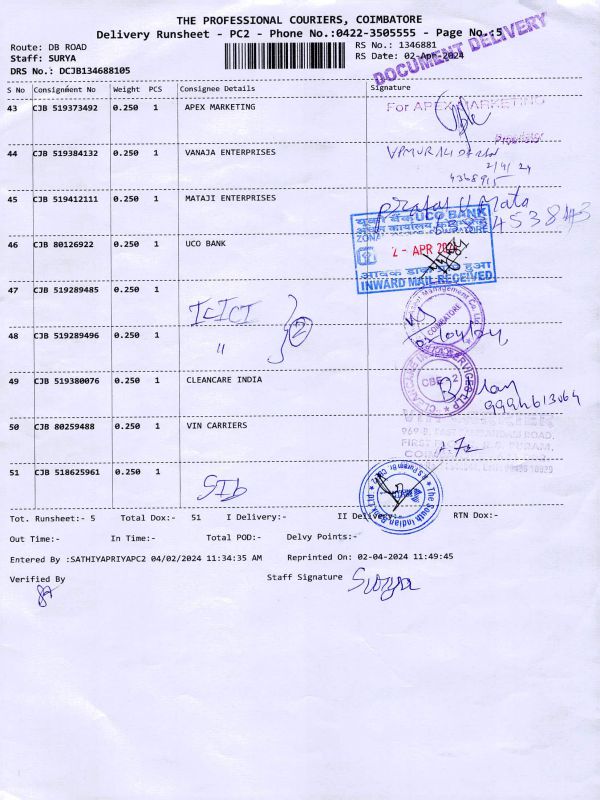 THE PROFESSIONAL COURIERS, COIMBATORE
Delivery Runsheet - PC2 - Phone No.:0422-3505555 - Page No.:5
Route: DB ROAD
RS No.: 1346881
Staff: SURYA
RS Date: 02-Apr-2024
DRS No.: DCJB134688105
DOCUMENT DELIVERY
S No Consignment No Weight PCS Consignee Details Signature
43 CJB 519373492 0.250 1 APEX MARKETING
For APEX MARKETING
Proprietor
44 CJB 519384132 0.250 1 VANAJA ENTERPRISES
2/4/24
45 CJB 519412111 0.250 1 MATAJI ENTERPRISES
Mata
46 CJB 80126922 0.250 1 UCO BANK
यूको बैंक UCO BANK
2 - APR 2024
INWARD MAIL RECEIVED
47 CJB 519289485 0.250 1 ICICI
COIMBATORE
48 CJB 519289496 0.250 1 "
2
49 CJB 519380076 0.250 1 CLEANCARE INDIA
CBE - 2
50 CJB 80259488 0.250 1 VIN CARRIERS
51 CJB 518625961 0.250 1 SIb
The South Indian Bank Ltd
Tot. Runsheet:- 5 Total Dox:- 51 I Delivery:- II Delivery:- RTN Dox:-
Out Time:- In Time:- Total POD:- Delvy Points:-
Entered By :SATHIYAPRIYAPC2 04/02/2024 11:34:35 AM Reprinted On: 02-04-2024 11:49:45
Verified By
Staff Signature Surya